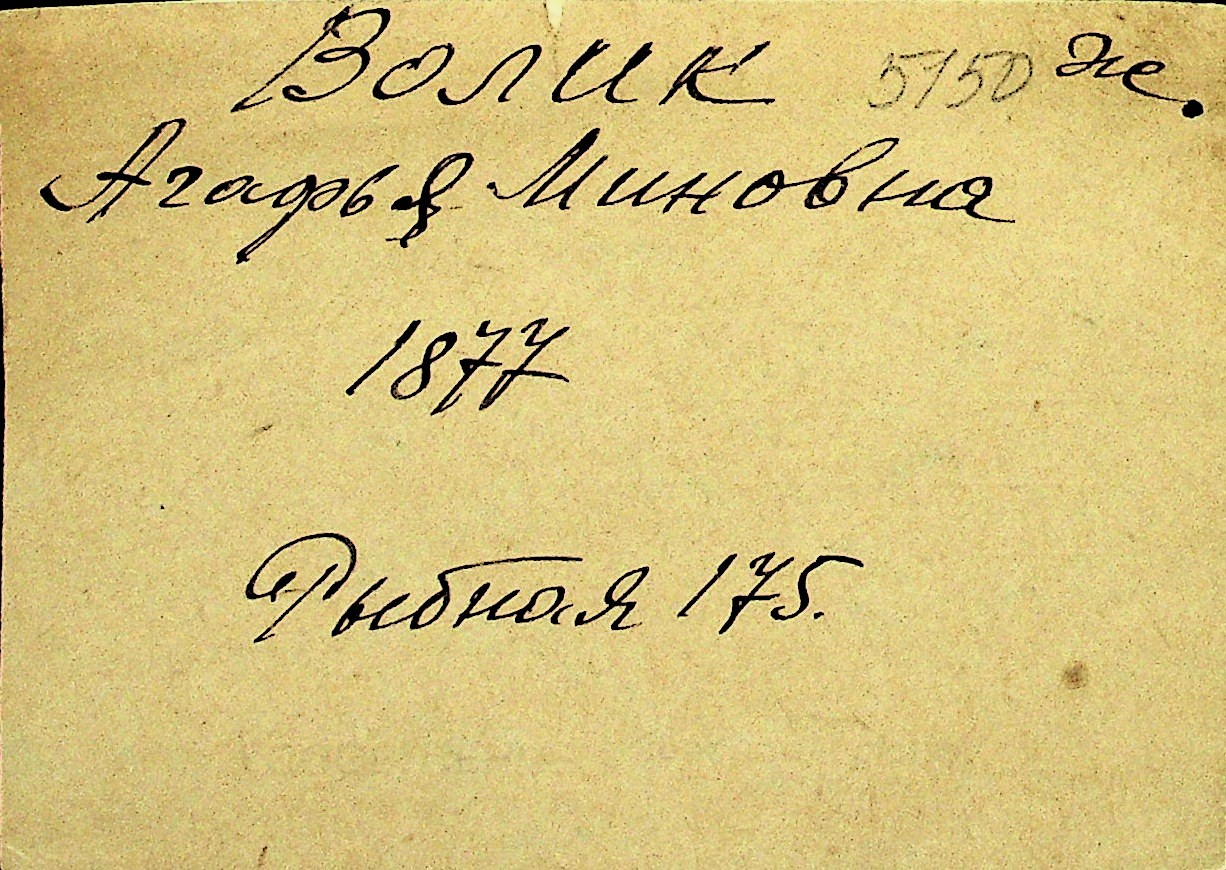 Волик 5150 ж.
Агафья Миновна
1877
Рыбная 175.